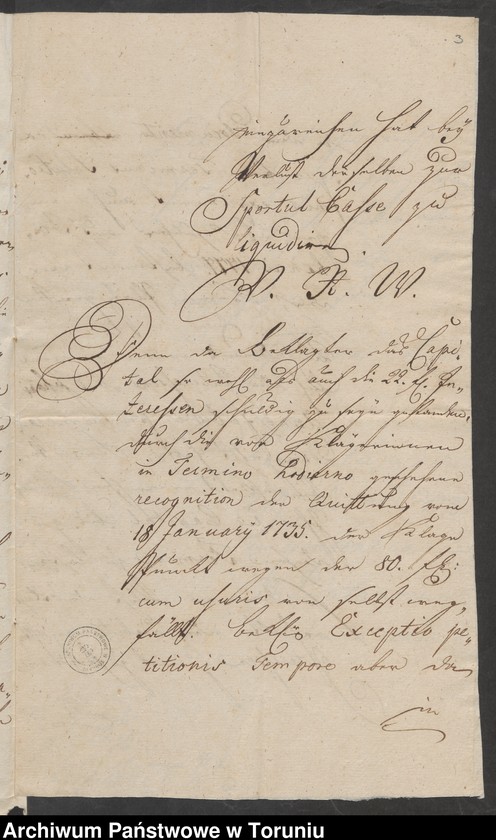 3
einzureichen hat bey
Verlust derselben zur
Sportul Casse zu
liquidiren
V. R. W.
Denn da Beklagter das Capi-
tal so wohl als auch die 22. f. In-
teressen schuldig zu seyn gestanden,
durch die von Klägerinnen
in Termino hodierno geschehene
recognition der Quittung vom
18 January 1735. der Klage
Punckt wegen der 80. f.
cum usuris von selbst weg-
fällt. Exceptio pe-
titionis Tempore aber da
in
Archiwum Państwowe w Toruniu